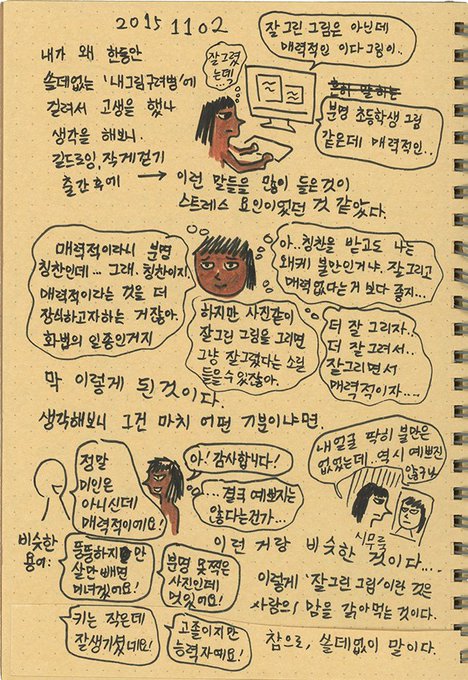 2015 11 02
내가 왜 한동안
쓸데없는 '내그림구려병'에
걸려서 고생을 했나
생각을 해보니.
길드로잉, 작게걷기
출간후에 →
잘그렸
는데!
잘 그린 그림은 아닌데
매력적인 이다그림이..
흔히 말하는
분명 초등학생 그림
같은데 매력적인..
이런 말들을 많이 들은것이
스트레스 요인이었던 것 같았다.
매력적이라니 분명
칭찬인데... 그래. 칭찬이지.
매력적이라는 것을 더
장식하고자하는 거잖아.
화법의 일종인거지
아.. 칭찬을 받고도 나는
왜케 불만인거냐. 잘그리고
매력없다는거 보다 좋지...
하지만 사진같이
잘그린 그림을 그리면
그냥 잘그렸다는 소릴
들을수 있잖아.
더 잘 그리자..
더 잘 그려서..
잘그리면서
매력적이자....
막 이렇게 된 것이다.
생각해보니 그건 마치 어떤 기분이냐면.
정말
미인은
아니신데
매력적이에요!
아! 감사합니다!
...결국 예쁘지는
않다는건가...
내얼굴 딱히 불만은
없었는데. 역시 예쁘진
않구나
시무룩
이런 거랑 비슷한 것이다....
비슷한
용어:
뚱뚱하지만
살만 빼면
미녀겠어요!
분명 못찍은
사진인데
멋있어요!
키는 작은데
잘생기셨네요!
고졸이지만
능력자예요!
이렇게 '잘그린 그림'이란 것은
사람의 맘을 갉아먹는 것이다.
참으로, 쓸데없이 말이다.